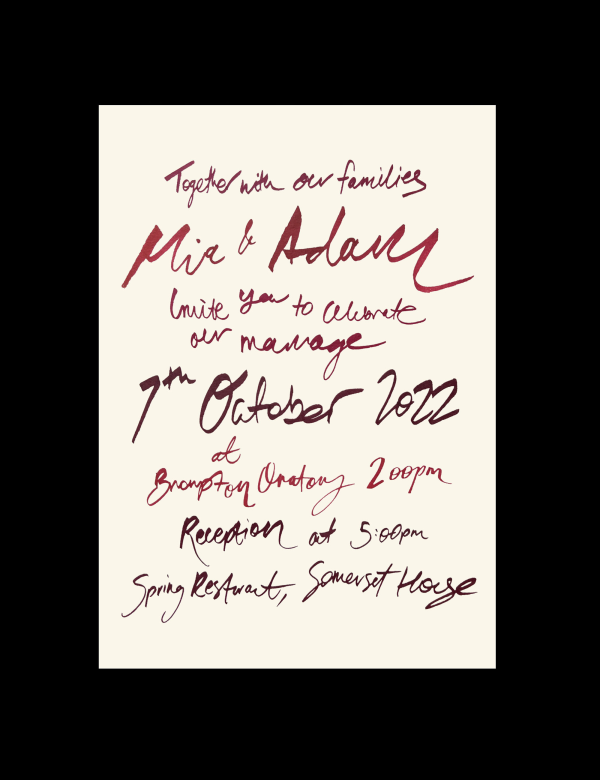 Together with our families
Mia & Adam
Invite you to celebrate
our marriage
7th October 2022
at
Brompton Oratory 2oopm
Reception at 5:00pm
Spring Resturant, Somerset House